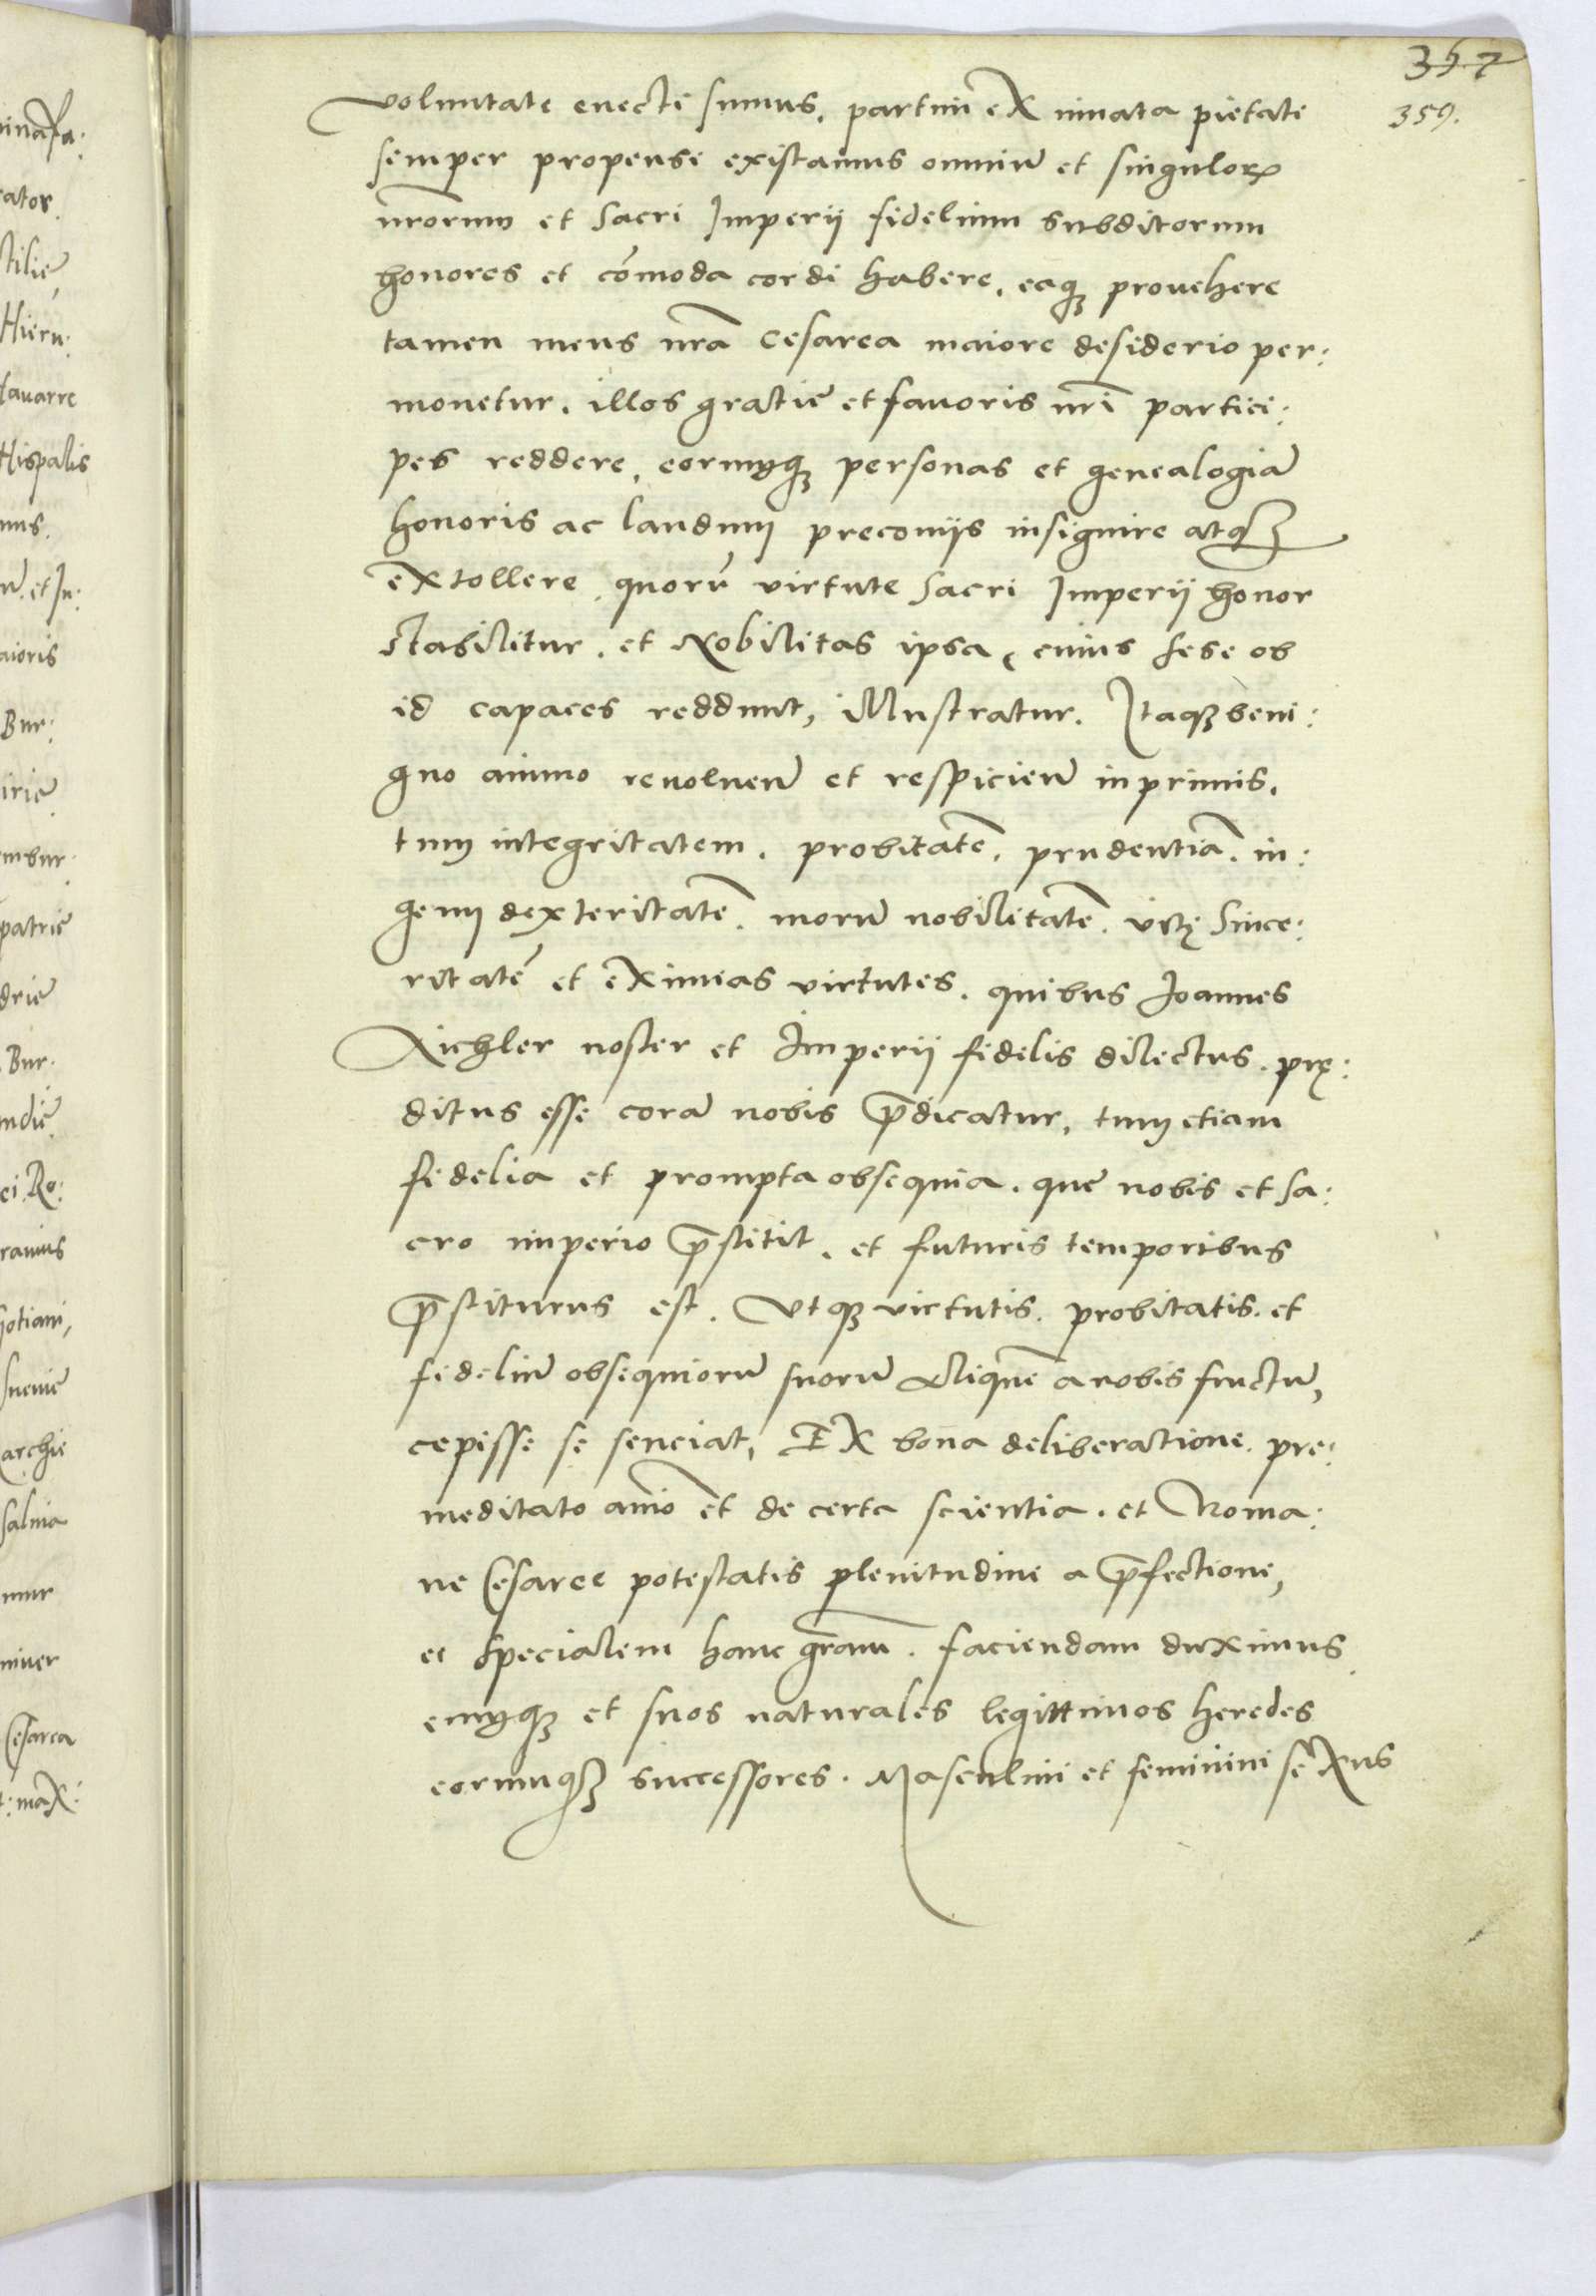 357
359.
voluntate euecti sumus, partim ex innata pietate
semper propensi existamus omniū et singuloꝝ
nr̄orum et Sacri Imperij fidelium subditorum
honores et cōmoda cordi habere, eaqꝫ prouehere
tamen mens nr̄a Cesarea maiore desiderio per:
mouetur, illos gratie et fauoris nr̄i partici:
pes reddere, eorumqꝫ personas et genealogiā
honoris ac laudum preconijs insignire atqꝫ
extollere, quorū virtute Sacri Imperij honor
stabilitur, et Nobilitas ipsa, cuius sese ob
id capaces reddunt, illustratur. Itaqꝫ beni:
gno animo reuoluen̄ et respicien̄ inprimis,
tum integritatem, probitatē, prudentiā, in:
genij dexteritatē, morū nobilitatē, vitę since:
ritatē et eximias virtutes, quibus Ioannes
Aichler noster et Imperij fidelis dilectus, prę:
ditus esse corā nobis p̄dicatur, tum etiam
fidelia et prompta obsequia, que nobis et sa:
cro imperio p̄stitit, et futuris temporibus
p̄stiturus est. Vtqꝫ virtutis, probitatis, et
fideliū obsequiorū suorū aliquē a nobis fructū,
cepisse se senciat, Ex bona deliberatione, pre:
meditato aīo et de certa scientia, et Roma:
ne Cesaree potestatis plenitudine a p̄fectione,
et specialem hanc gr̄am, faciendam duximus
eumqꝫ et suos naturales legittimos heredes
eorumqꝫ successores, Masculini et feminini sexus
inafa:
ator
tilie
Hieru:
Nauarre
Hispalis
mus.
et In:
aioris
Bur:
irie
mbur
patrie
drie
Bur.
ndie
ei Ro:
ramus
gotiani,
sueuie
archie
salma
mur
niuer
Cesarea
max: